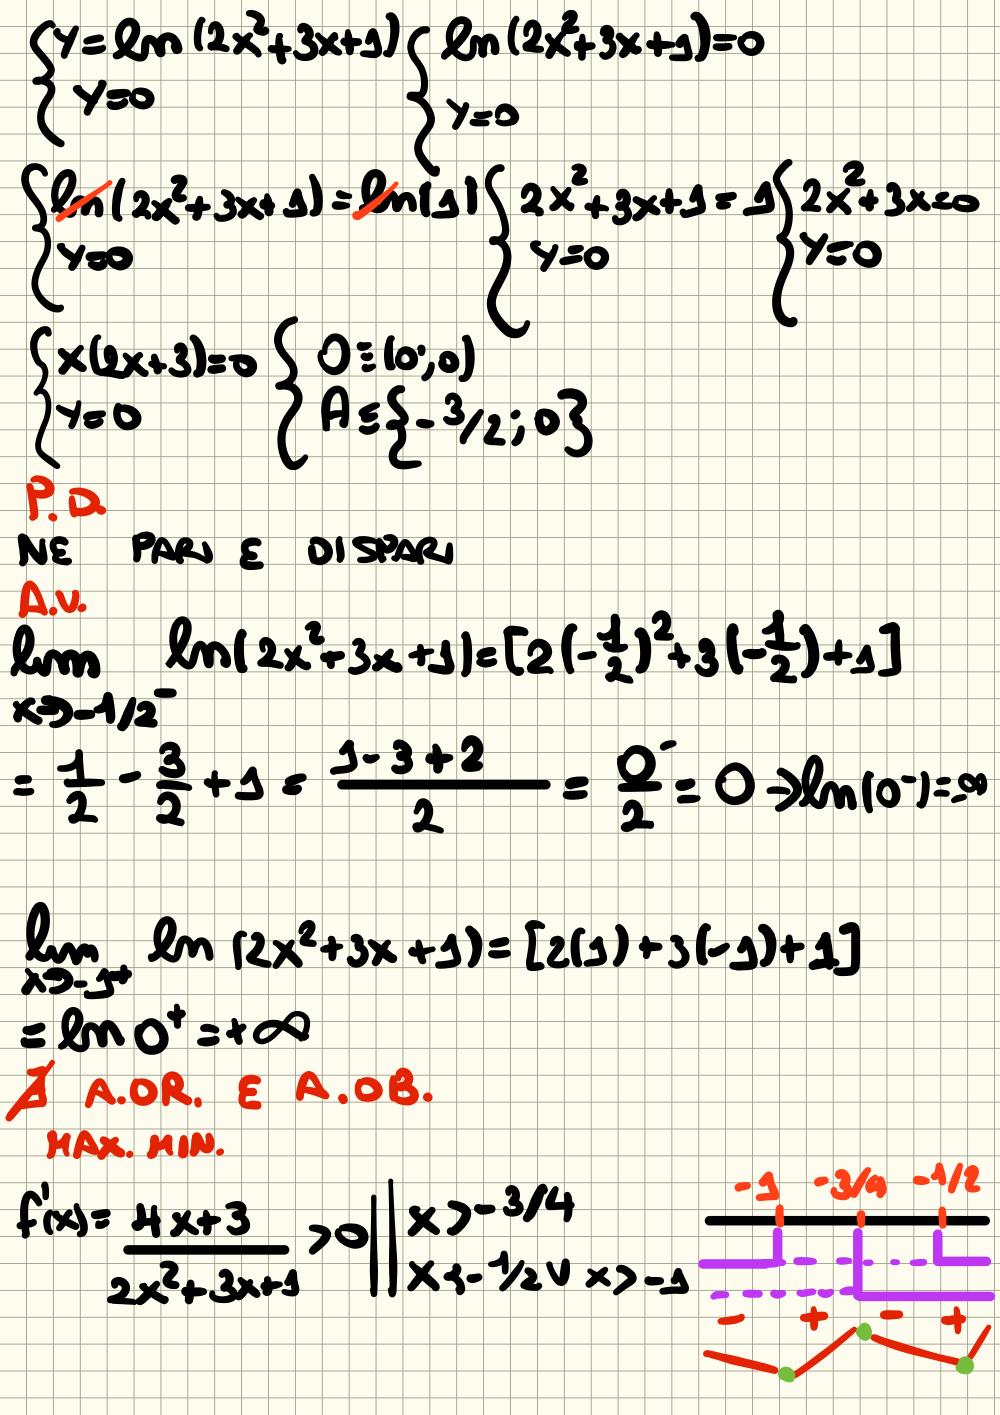 { y = ln (2x²+3x+1) { ln (2x²+3x+1) = 0
y=0 y=0
{ ln (2x²+3x+1) = ln (1) { 2x²+3x+1 = 1 { 2x²+3x=0
y=0 y=0 y=0
{ x(2x+3)=0 { O ≡ (0;0)
y=0 A ≡ {-3/2; 0}
P.D.
NE PARI E DISPARI
A.V.
lim ln(2x²+3x+1) = [2(-1/2)²+3(-1/2)+1]
x→-1/2⁻
= 1/2 - 3/2 + 1 = (1-3+2)/2 = 0⁻/2 = 0 → ln(0⁻) = -∞
lim ln (2x²+3x+1) = [2(1)+3(-1)+1]
x→-1⁺
= ln 0⁺ = +∞
∄ A.OR. E A.OB.
MAX. MIN.
-1 -3/4 -1/2
f'(x) = (4x+3)/(2x²+3x+1) > 0 || x > -3/4
x < -1/2 V x > -1
- + - +